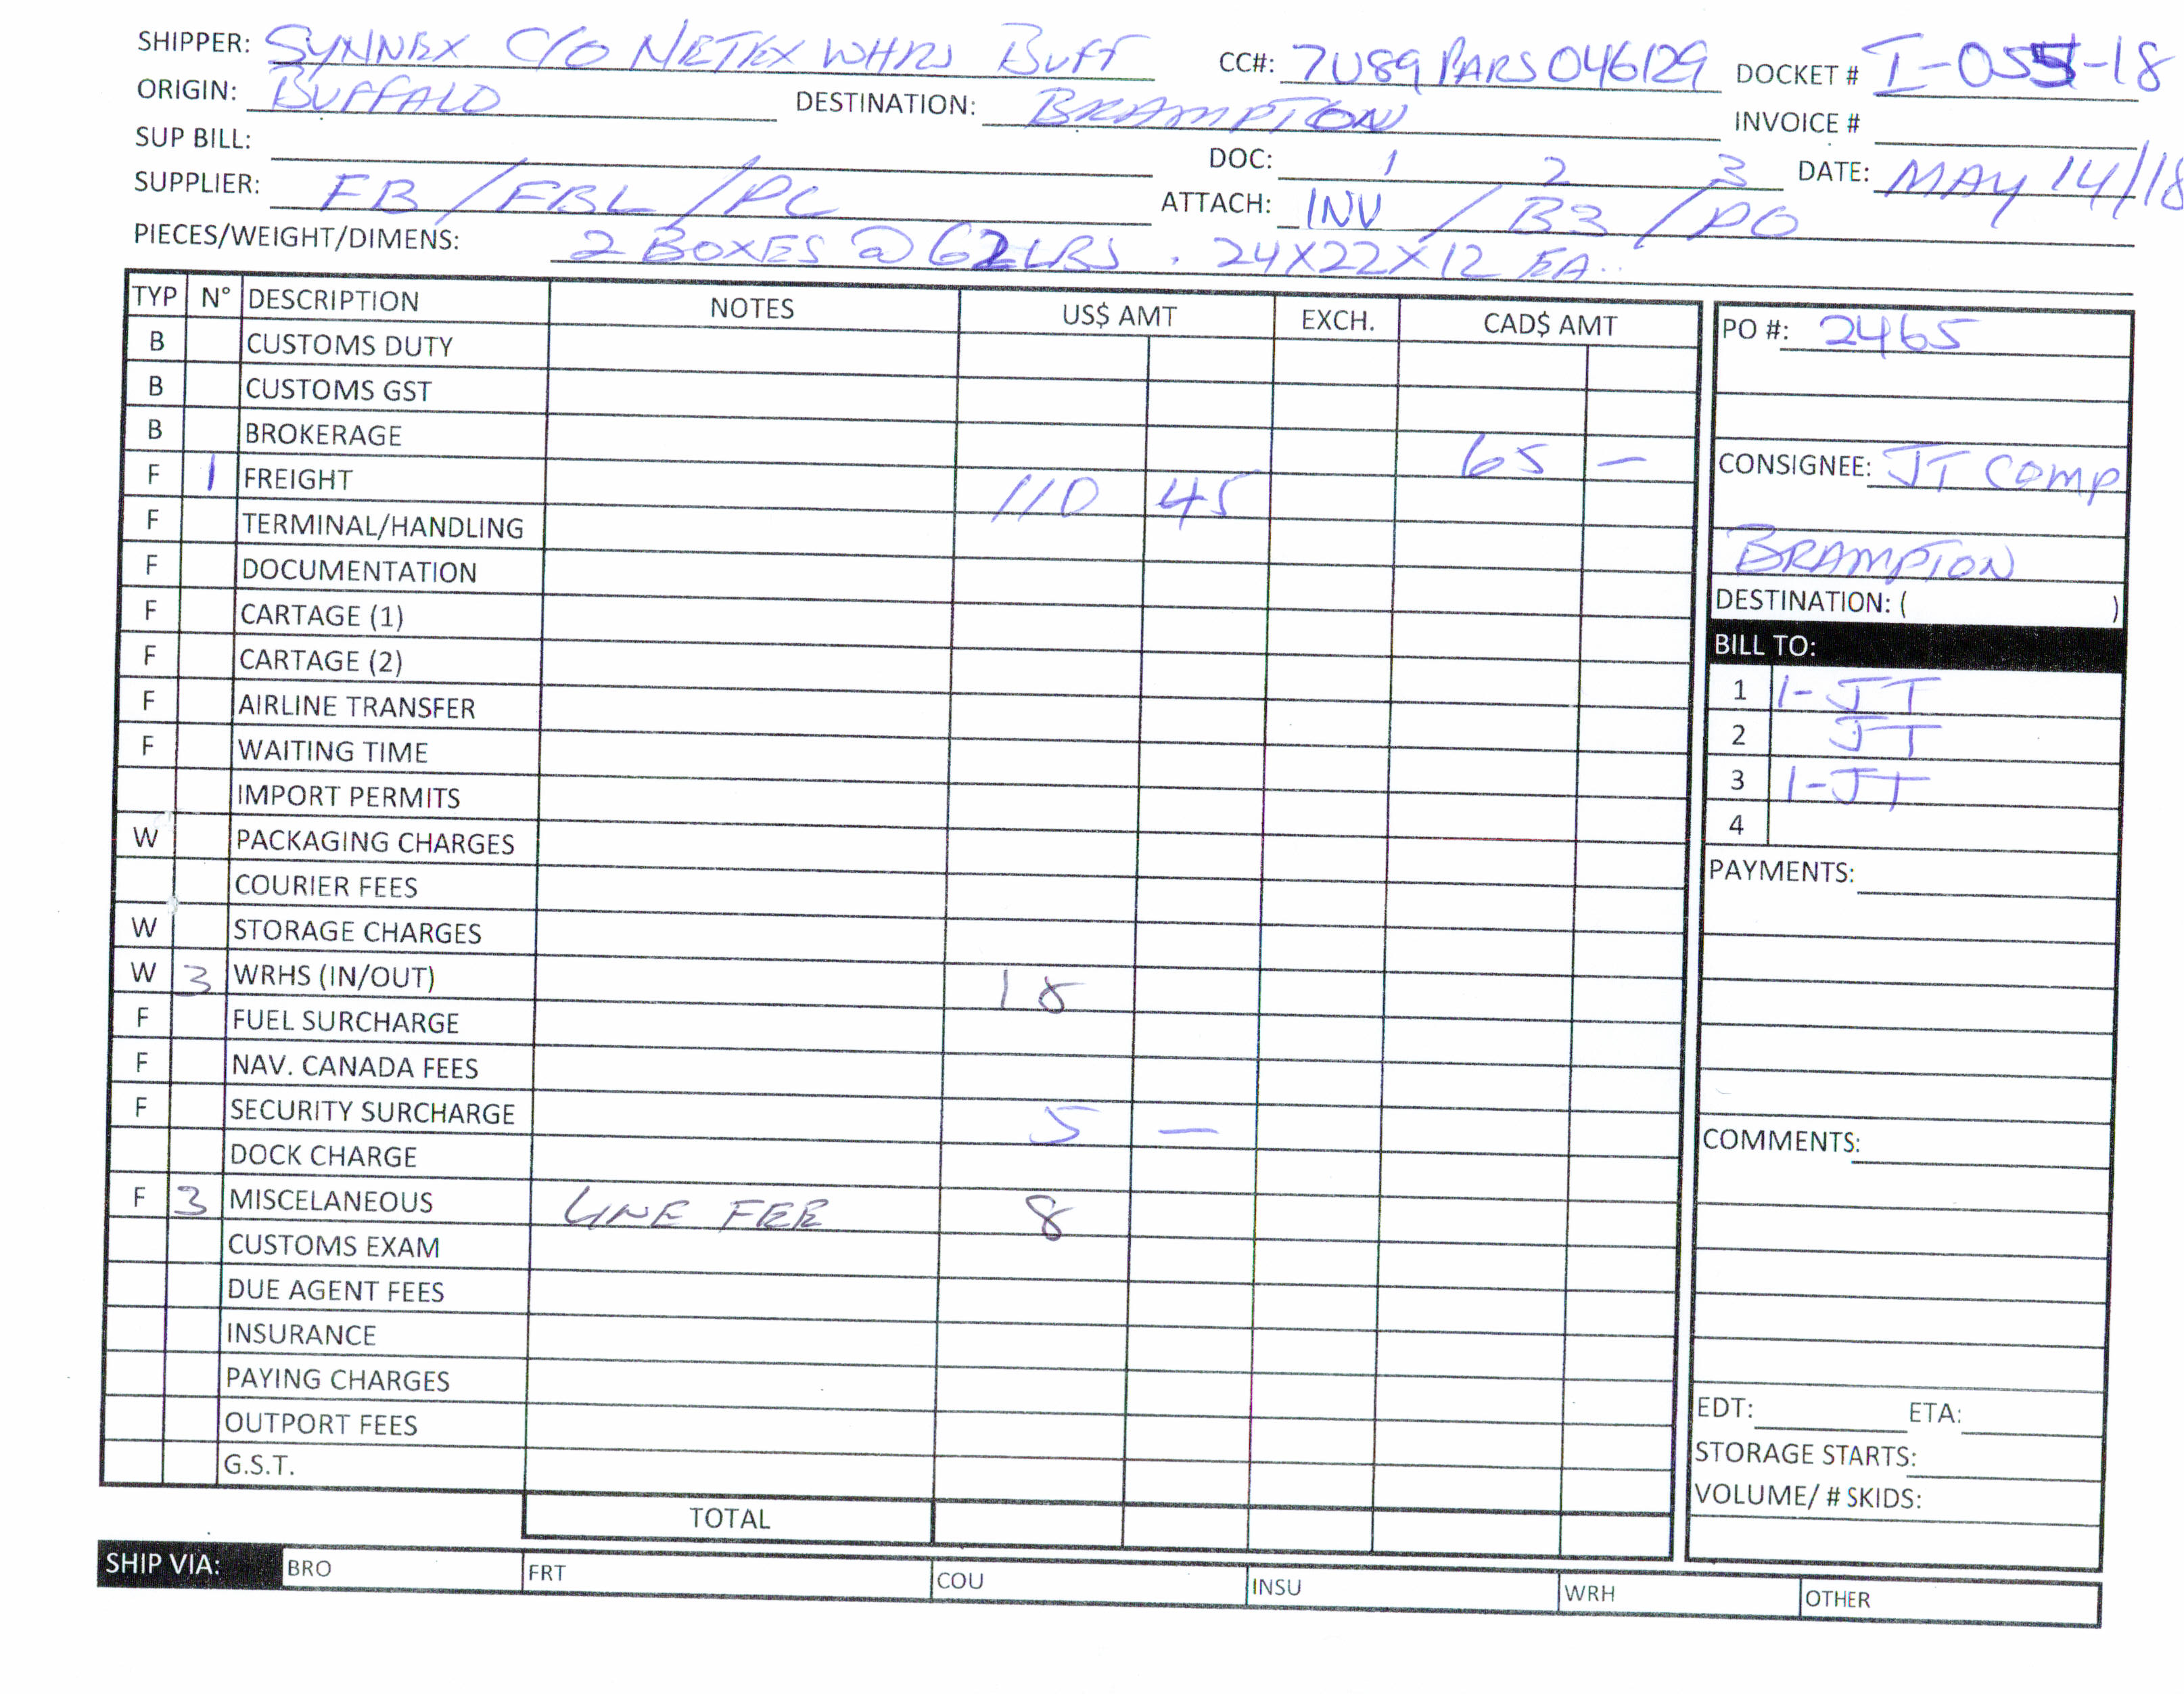 SHIPPER: SYNNEX C/O NETEX WHRS BUFF CC#: 7U89PARS046129 DOCKET # I-055-18
ORIGIN: BUFFALO DESTINATION: BRAMPTON INVOICE #
SUP BILL: DOC: 1 2 3 DATE: MAY 14/18
SUPPLIER: FB / FBL / PC ATTACH: INV / B3 / PO
PIECES/WEIGHT/DIMENS: 2 BOXES @ 62 LBS . 24X22X12 EA..
TYP N° DESCRIPTION NOTES US$ AMT EXCH. CAD$ AMT
B CUSTOMS DUTY
B CUSTOMS GST
B BROKERAGE 65 —
F 1 FREIGHT 110 45
F TERMINAL/HANDLING
F DOCUMENTATION
F CARTAGE (1)
F CARTAGE (2)
F AIRLINE TRANSFER
F WAITING TIME
IMPORT PERMITS
W PACKAGING CHARGES
COURIER FEES
W STORAGE CHARGES
W 3 WRHS (IN/OUT) 18
F FUEL SURCHARGE
F NAV. CANADA FEES
F SECURITY SURCHARGE 5 —
DOCK CHARGE
F 3 MISCELANEOUS LINE FEE 8
CUSTOMS EXAM
DUE AGENT FEES
INSURANCE
PAYING CHARGES
OUTPORT FEES
G.S.T.
TOTAL
PO #: 2465
CONSIGNEE: JT COMP
BRAMPTON
DESTINATION: ( )
BILL TO:
1 1-JT
2 JT
3 1-JT
4
PAYMENTS:
COMMENTS:
EDT: ETA:
STORAGE STARTS:
VOLUME/ # SKIDS:
SHIP VIA: BRO FRT COU INSU WRH OTHER